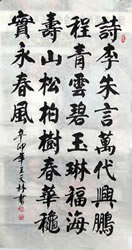 詩李朱言萬代興鵬
程青雲碧玉琳福海
壽山松柏樹春華穐
實永春風
辛卯年王天林書